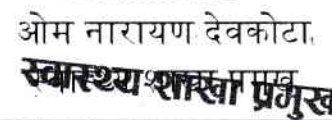 ओम नारायण देवकोटा,
स्वास्थ्य शाखा प्रमुख